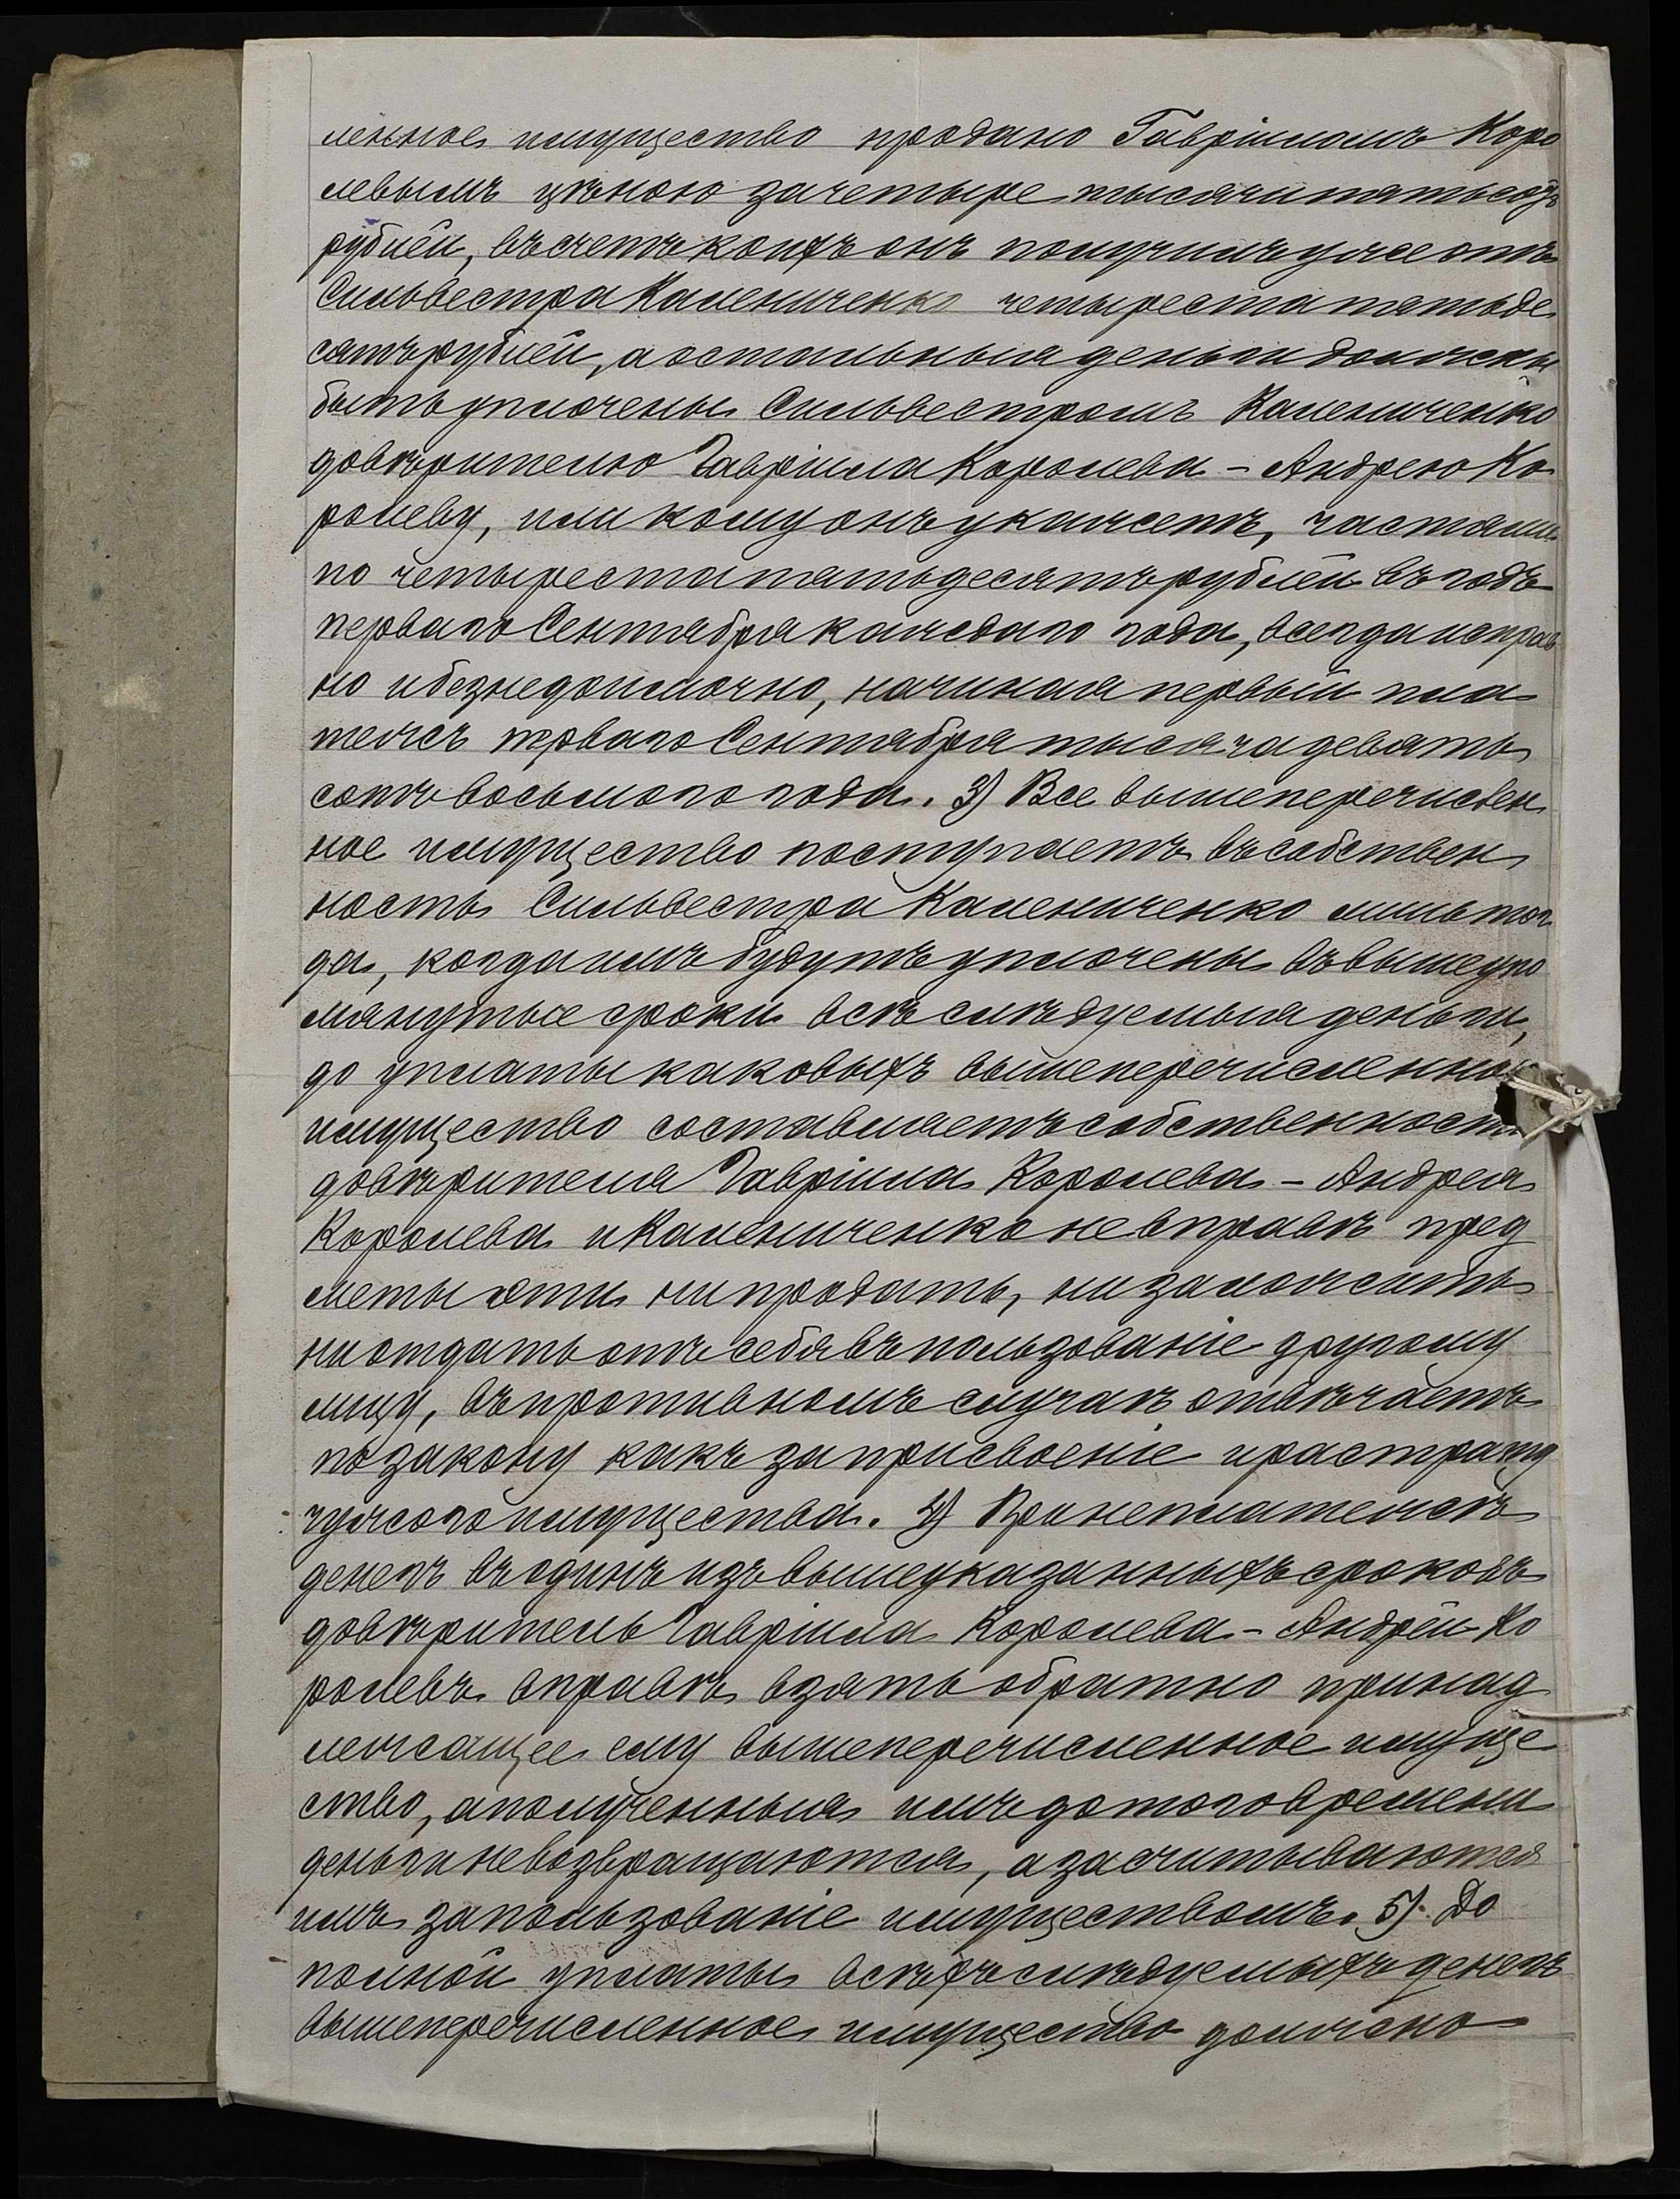 ленное имущество продано Гавріиломъ Коро
левымъ цѣною за четыре тысячи пятьсотъ
рублей, въ счетъ коихъ онъ получилъ уже отъ
Сильвестра Калениченко четыреста пятьде
сятъ рублей, а остальныя деньги должны
быть уплочены Сильвестромъ Калениченко
довѣрителю Гавріила Королева - Андрею Ко
ролеву, или кому онъ укажетъ, частями
по четыреста пятьдесятъ рублей въ годъ
перваго Сентября каждаго года, всегда исправ
но и безнедоимочно, начиная первый пла
тежъ перваго Сентября тысяча девять
сотъ восьмого года. 3) Все вышеперечислен
ное имущество поступаетъ въ собствен
ность Сильвестра Калениченко лишь тог
да, когда имъ будутъ уплочены въ вышеупо
мянутые сроки всѣ слѣдуемыя деньги,
до уплаты каковыхъ вышеперечисленное
имущество составляетъ собственность
довѣрителя Гавріила Королева - Андрея
Королева и Калениченко не вправѣ пред
меты эти ни продать, ни заложить
ни отдать отъ себя въ пользованіе другому
лицу, въ противномъ случаѣ отвѣчаетъ
по закону какъ за присвоеніе и растрату
чужого имущества. 4) При неплатежѣ
денегъ въ одинъ изъ вышеуказанныхъ сроковъ
довѣритель Гавріила Королева - Андрей Ко
ролевъ вправѣ взять обратно принад
лежащее ему вышеперечисленное имуще
ство, а полученныя имъ до того времени
деньги не возвращаются, а засчитываются
имъ за пользованіе имуществомъ. 5) До
полной уплаты всѣхъ слѣдуемыхъ денегъ
вышеперечисленное имущество должно